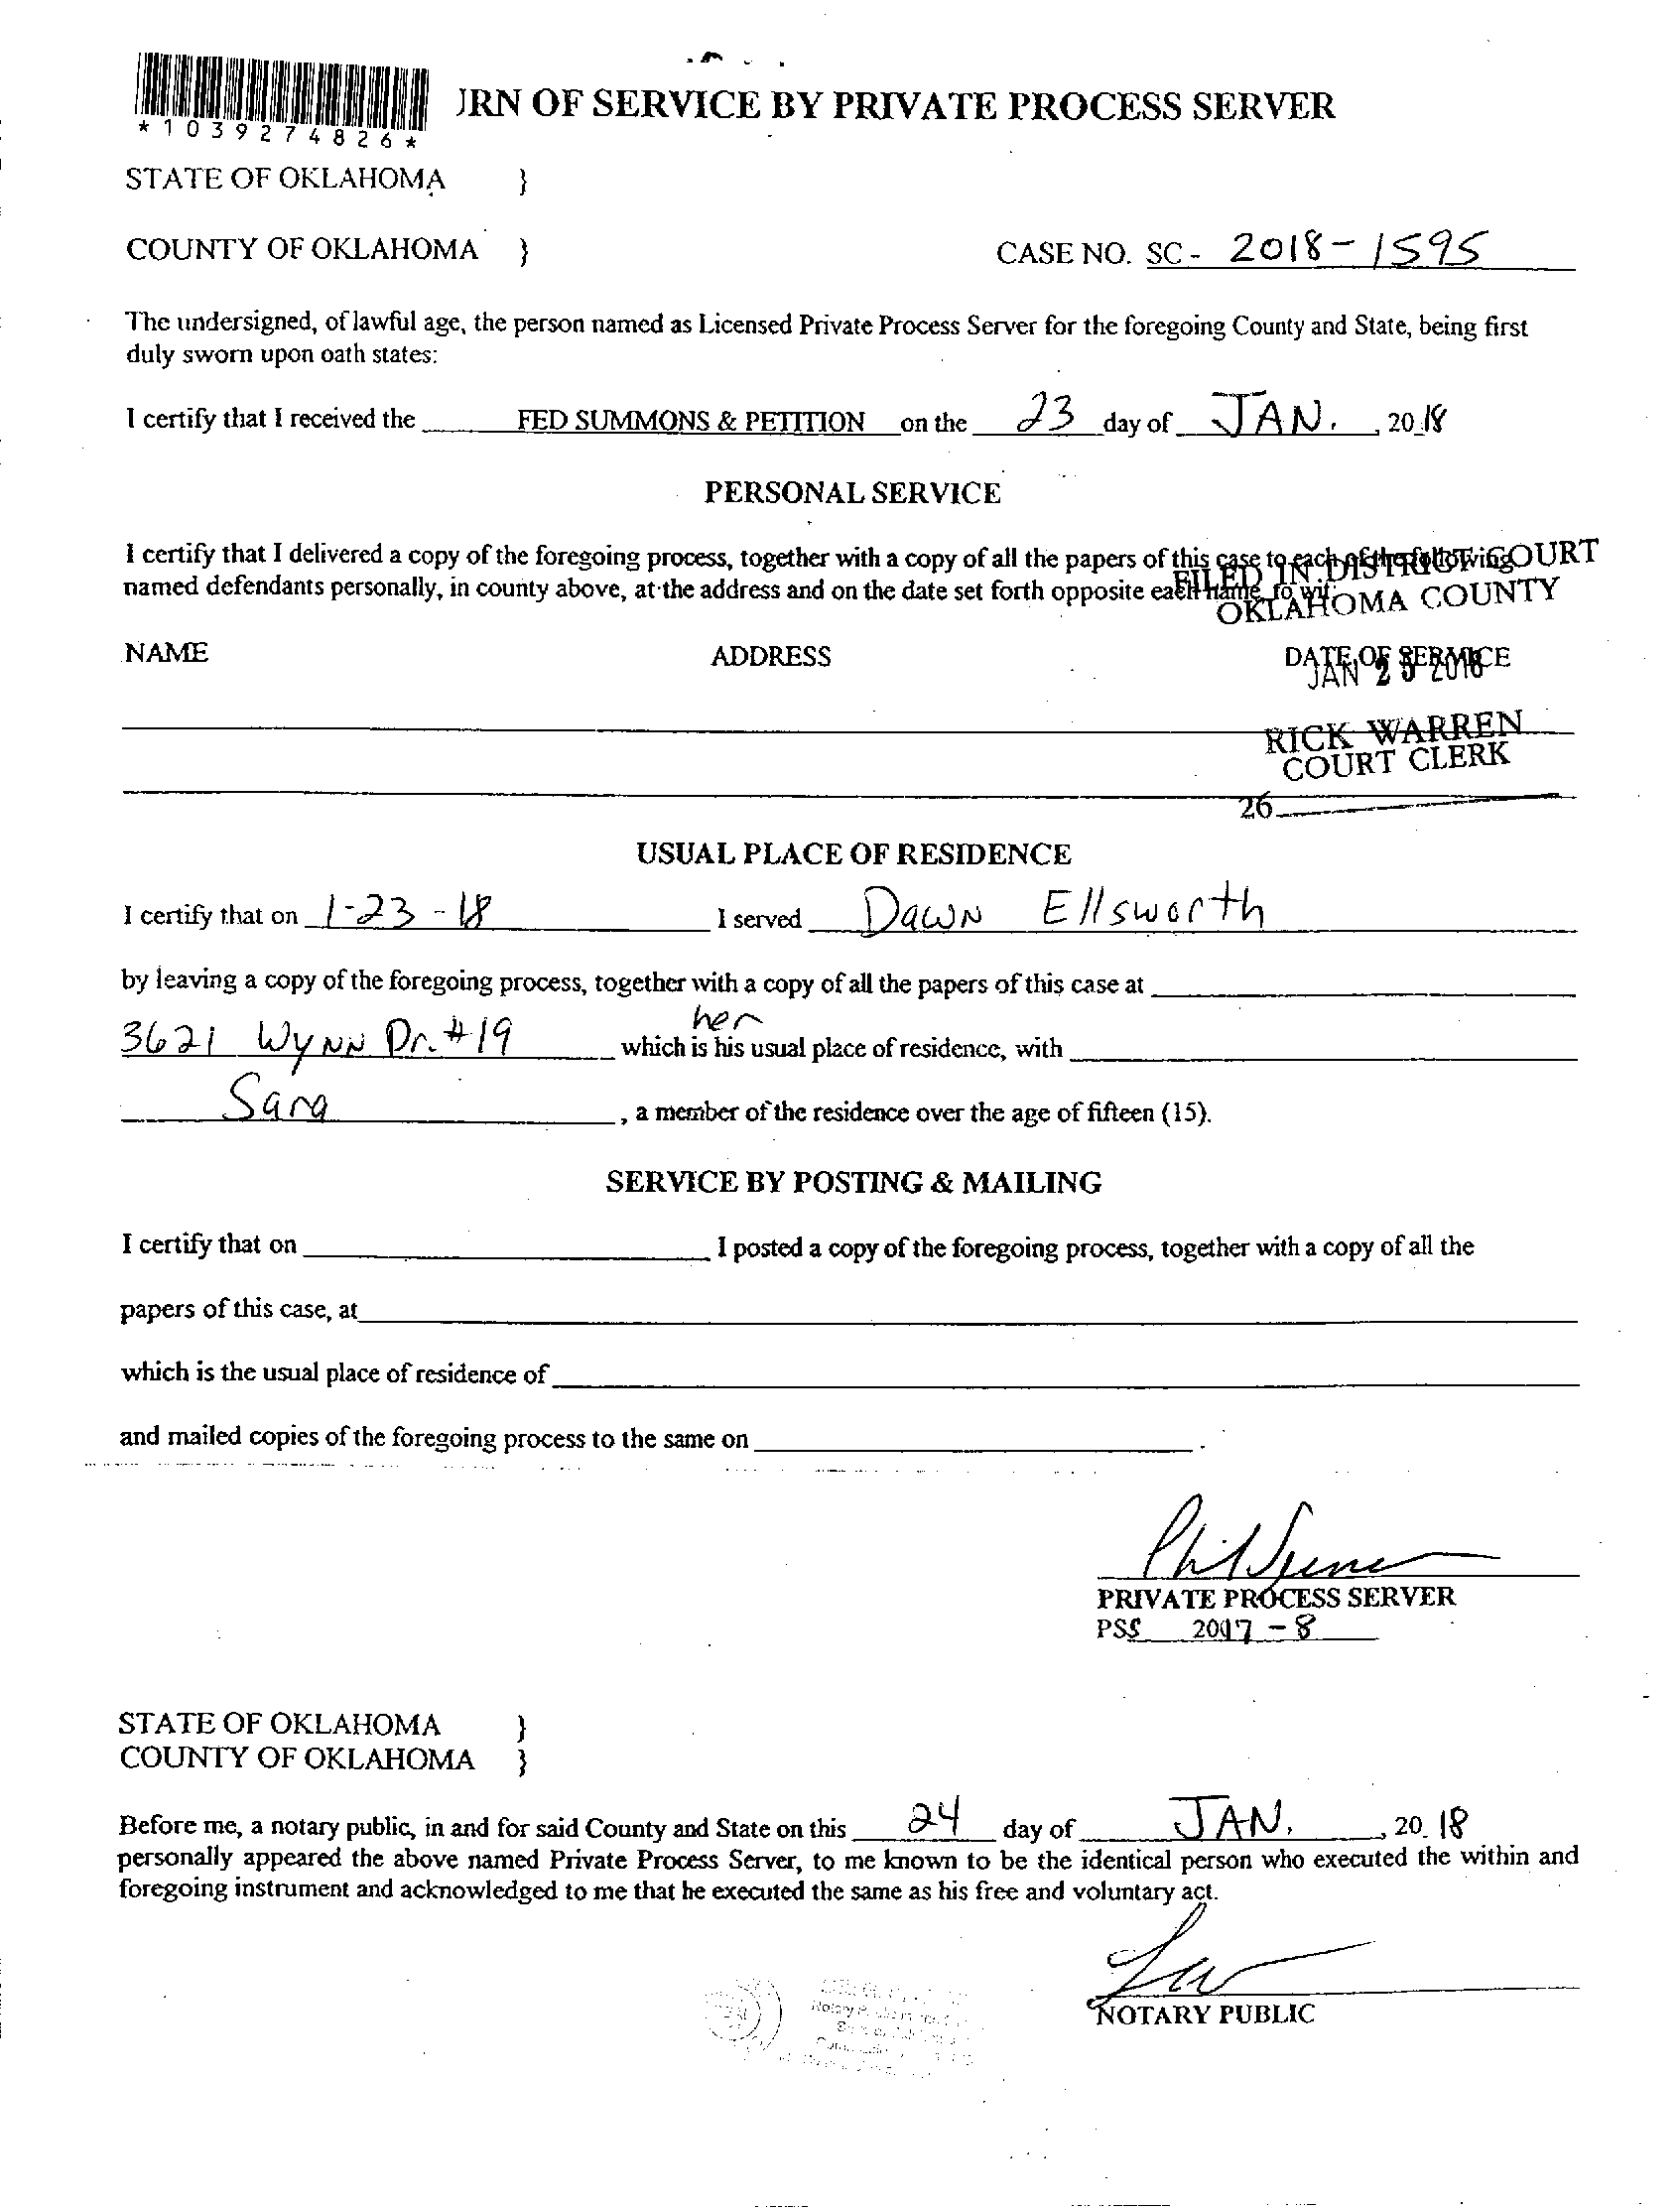 JRN OF SERVICE BY PRIVATE PROCESS SERVER
*1039274826*
STATE OF OKLAHOMA }
COUNTY OF OKLAHOMA } CASE NO. SC - 2018-1595
The undersigned, of lawful age, the person named as Licensed Private Process Server for the foregoing County and State, being first
duly sworn upon oath states:
I certify that I received the FED SUMMONS & PETITION on the 23 day of JAN. , 20 18
PERSONAL SERVICE
I certify that I delivered a copy of the foregoing process, together with a copy of all the papers of this case to each of the following
named defendants personally, in county above, at the address and on the date set forth opposite each name, to wit:
FILED IN DISTRICT COURT
OKLAHOMA COUNTY
NAME ADDRESS DATE OF SERVICE
JAN 25 2018
RICK WARREN
COURT CLERK
26
USUAL PLACE OF RESIDENCE
I certify that on 1-23-18 I served Dawn Ellsworth
by leaving a copy of the foregoing process, together with a copy of all the papers of this case at
her
3621 Wynn Dr. #19 which is his usual place of residence, with
Sara , a member of the residence over the age of fifteen (15).
SERVICE BY POSTING & MAILING
I certify that on I posted a copy of the foregoing process, together with a copy of all the
papers of this case, at
which is the usual place of residence of
and mailed copies of the foregoing process to the same on .
PRIVATE PROCESS SERVER
PSS 2017-8
STATE OF OKLAHOMA }
COUNTY OF OKLAHOMA }
Before me, a notary public, in and for said County and State on this 24 day of JAN. , 20 18
personally appeared the above named Private Process Server, to me known to be the identical person who executed the within and
foregoing instrument and acknowledged to me that he executed the same as his free and voluntary act.
NOTARY PUBLIC